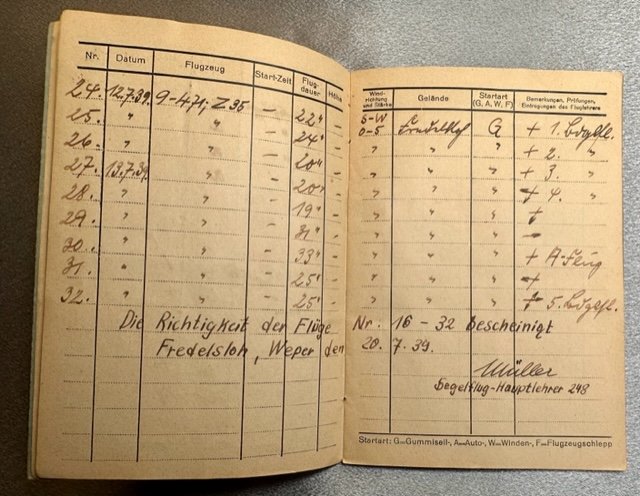 Nr. Datum Flugzeug Start-Zeit Flug-dauer Höhe
24. 12.7.39. 9-471; Z 35 - 22" -
25. " " - 24" -
26. " " - 20" -
27. 13.7.39. " - 20" -
28. " " - 19" -
29. " " - 31" -
30. " " - 33" -
31. " " - 25" -
32. " " - 25" -
Die Richtigkeit der Flüge
Fredelsloh, Weper den
Wind-richtung und Stärke Gelände Startart (G, A, W, F) Bemerkungen, Prüfungen, Eintragungen des Fluglehrers
S-W
0-5 G + 1.
" " " + 2. "
" " " + 3. "
" " " + 4. "
" " " +
" " " -
" " " + A-Flug
" " " +
" " " + 5.
Nr. 16 - 32 bescheinigt
20. 7. 39.
Müller
Segelflug-Hauptlehrer 248
Startart: G=Gummiseil-, A=Auto-, W=Winden-, F=Flugzeugschlepp